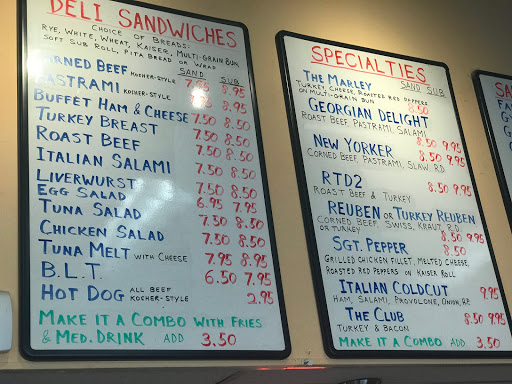 DELI SANDWICHES
CHOICE OF BREADS:
RYE, WHITE, WHEAT, KAISER, MULTI-GRAIN BUN,
SOFT SUB ROLL, PITA BREAD OR WRAP
SAND SUB
CORNED BEEF KOSHER-STYLE 7.95 8.95
PASTRAMI KOSHER-STYLE 7.95 8.95
BUFFET HAM & CHEESE 7.50 8.50
TURKEY BREAST 7.50 8.50
ROAST BEEF 7.50 8.50
ITALIAN SALAMI 7.50 8.50
LIVERWURST 7.50 8.50
EGG SALAD 6.95 7.95
TUNA SALAD 7.50 8.50
CHICKEN SALAD 7.50 8.50
TUNA MELT WITH CHEESE 7.95 8.95
B.L.T. 6.50 7.95
HOT DOG ALL BEEF KOCHER-STYLE 2.95
MAKE IT A COMBO WITH FRIES
& MED. DRINK ADD 3.50
SPECIALTIES
SAND SUB
THE MARLEY
TURKEY, CHEESE, ROASTED RED PEPPERS
ON MULTI-GRAIN BUN 8.50
GEORGIAN DELIGHT
ROAST BEEF, PASTRAMI, SALAMI
8.50 9.95
NEW YORKER 8.50 9.95
CORNED BEEF, PASTRAMI, SLAW, R.D.
RTD2 8.50 9.95
ROAST BEEF & TURKEY
REUBEN OR TURKEY REUBEN
CORNED BEEF, SWISS, KRAUT, R.D.
OR TURKEY 8.50 9.95
SGT. PEPPER 8.50
GRILLED CHICKEN FILLET, MELTED CHEESE,
ROASTED RED PEPPERS ON KAISER ROLL
ITALIAN COLDCUT 9.95
HAM, SALAMI, PROVOLONE, ONION, R.P.
THE CLUB 8.50 9.95
TURKEY & BACON
MAKE IT A COMBO ADD 3.50